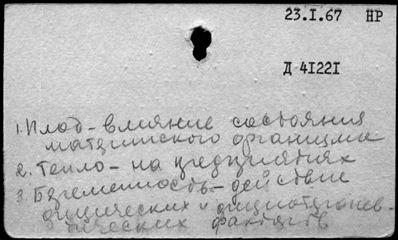 23.I.67 НР
Д 41221
1. Плод - влияние состояния
материнского организма
2. Тепло - на предприятиях
3. Беременность - действие
физических и
ических факторов